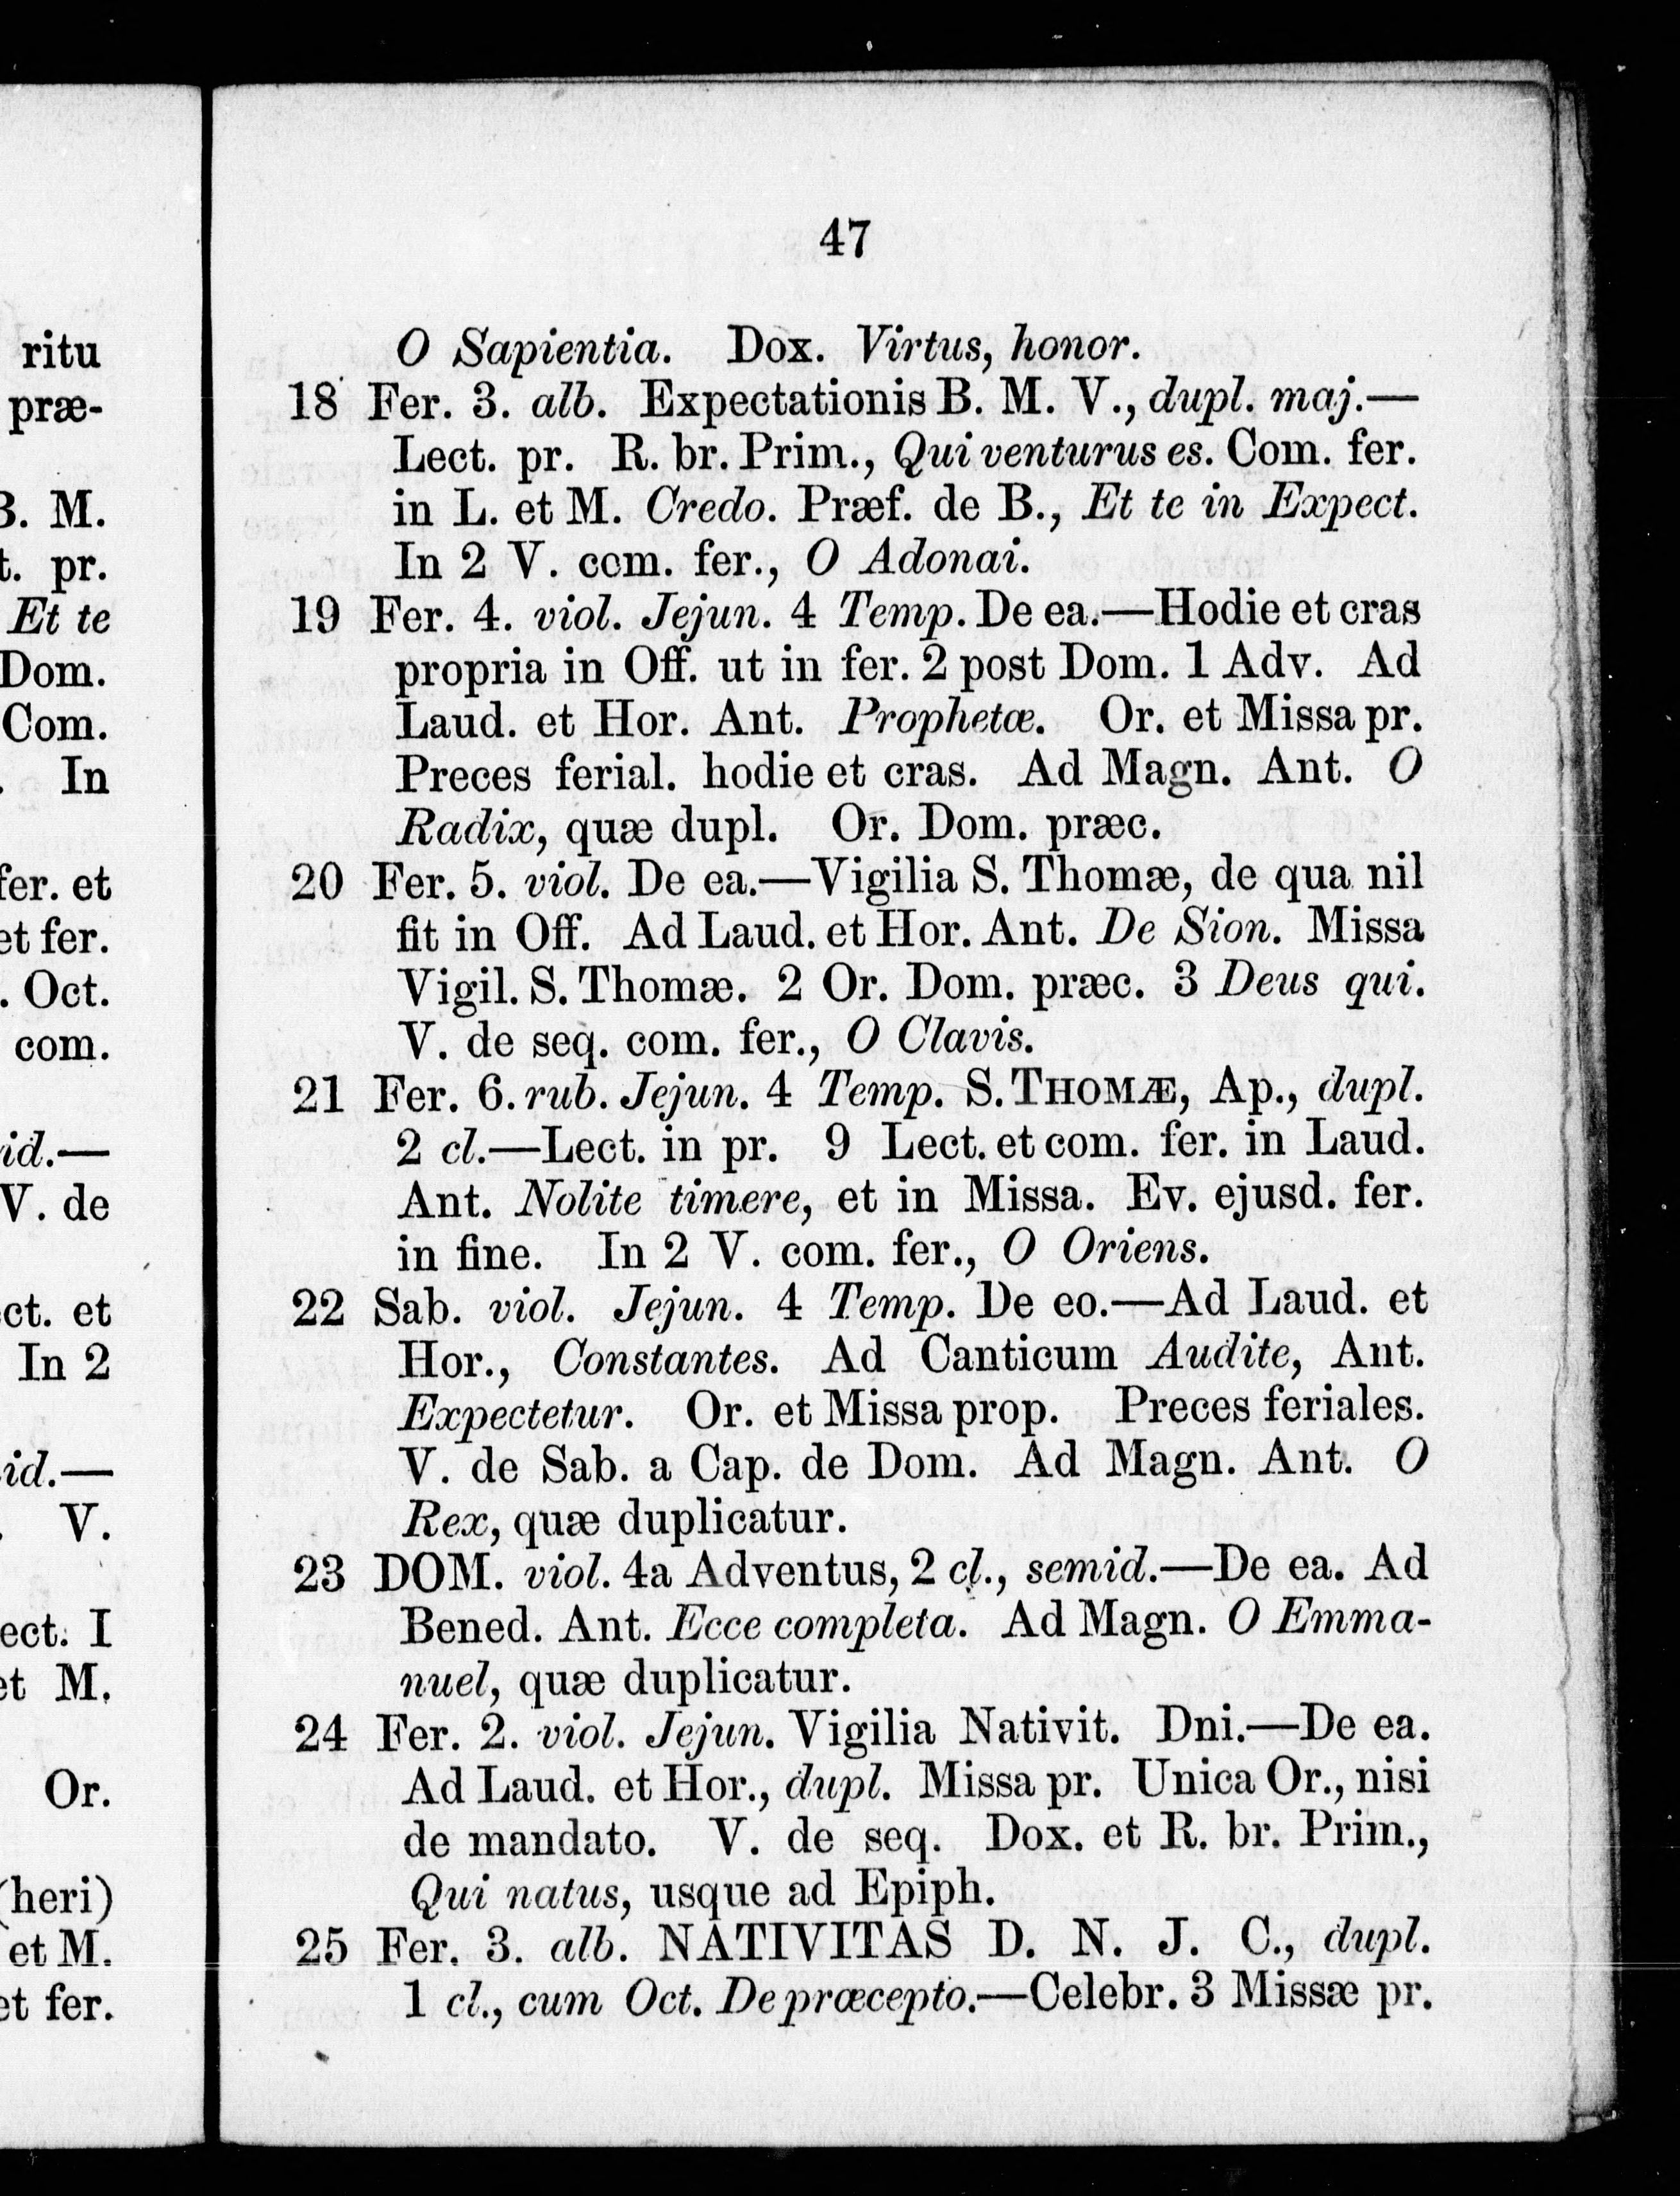 ritu
præ-
B. M.
t. pr.
Et te
Dom.
Com.
In
fer. et
et fer.
. Oct.
com.
id.—
V. de
ct. et
In 2
id.—
V.
ect. I
et M.
Or.
(heri)
et M.
et fer.
47
O Sapientia. Dox. Virtus, honor.
18 Fer. 3. alb. Expectationis B. M. V., dupl. maj.—
Lect. pr. R. br. Prim., Qui venturus es. Com. fer.
in L. et M. Credo. Præf. de B., Et te in Expect.
In 2 V. com. fer., O Adonai.
19 Fer. 4. viol. Jejun. 4 Temp. De ea.—Hodie et cras
propria in Off. ut in fer. 2 post Dom. 1 Adv. Ad
Laud. et Hor. Ant. Prophetæ. Or. et Missa pr.
Preces ferial. hodie et cras. Ad Magn. Ant. O
Radix, quæ dupl. Or. Dom. præc.
20 Fer. 5. viol. De ea.—Vigilia S. Thomæ, de qua nil
fit in Off. Ad Laud. et Hor. Ant. De Sion. Missa
Vigil. S. Thomæ. 2 Or. Dom. præc. 3 Deus qui.
V. de seq. com. fer., O Clavis.
21 Fer. 6. rub. Jejun. 4 Temp. S. THOMÆ, Ap., dupl.
2 cl.—Lect. in pr. 9 Lect. et com. fer. in Laud.
Ant. Nolite timere, et in Missa. Ev. ejusd. fer.
in fine. In 2 V. com. fer., O Oriens.
22 Sab. viol. Jejun. 4 Temp. De eo.—Ad Laud. et
Hor., Constantes. Ad Canticum Audite, Ant.
Expectetur. Or. et Missa prop. Preces feriales.
V. de Sab. a Cap. de Dom. Ad Magn. Ant. O
Rex, quæ duplicatur.
23 DOM. viol. 4a Adventus, 2 cl., semid.—De ea. Ad
Bened. Ant. Ecce completa. Ad Magn. O Emma-
nuel, quæ duplicatur.
24 Fer. 2. viol. Jejun. Vigilia Nativit. Dni.—De ea.
Ad Laud. et Hor., dupl. Missa pr. Unica Or., nisi
de mandato. V. de seq. Dox. et R. br. Prim.,
Qui natus, usque ad Epiph.
25 Fer. 3. alb. NATIVITAS D. N. J. C., dupl.
1 cl., cum Oct. De præcepto.—Celebr. 3 Missæ pr.